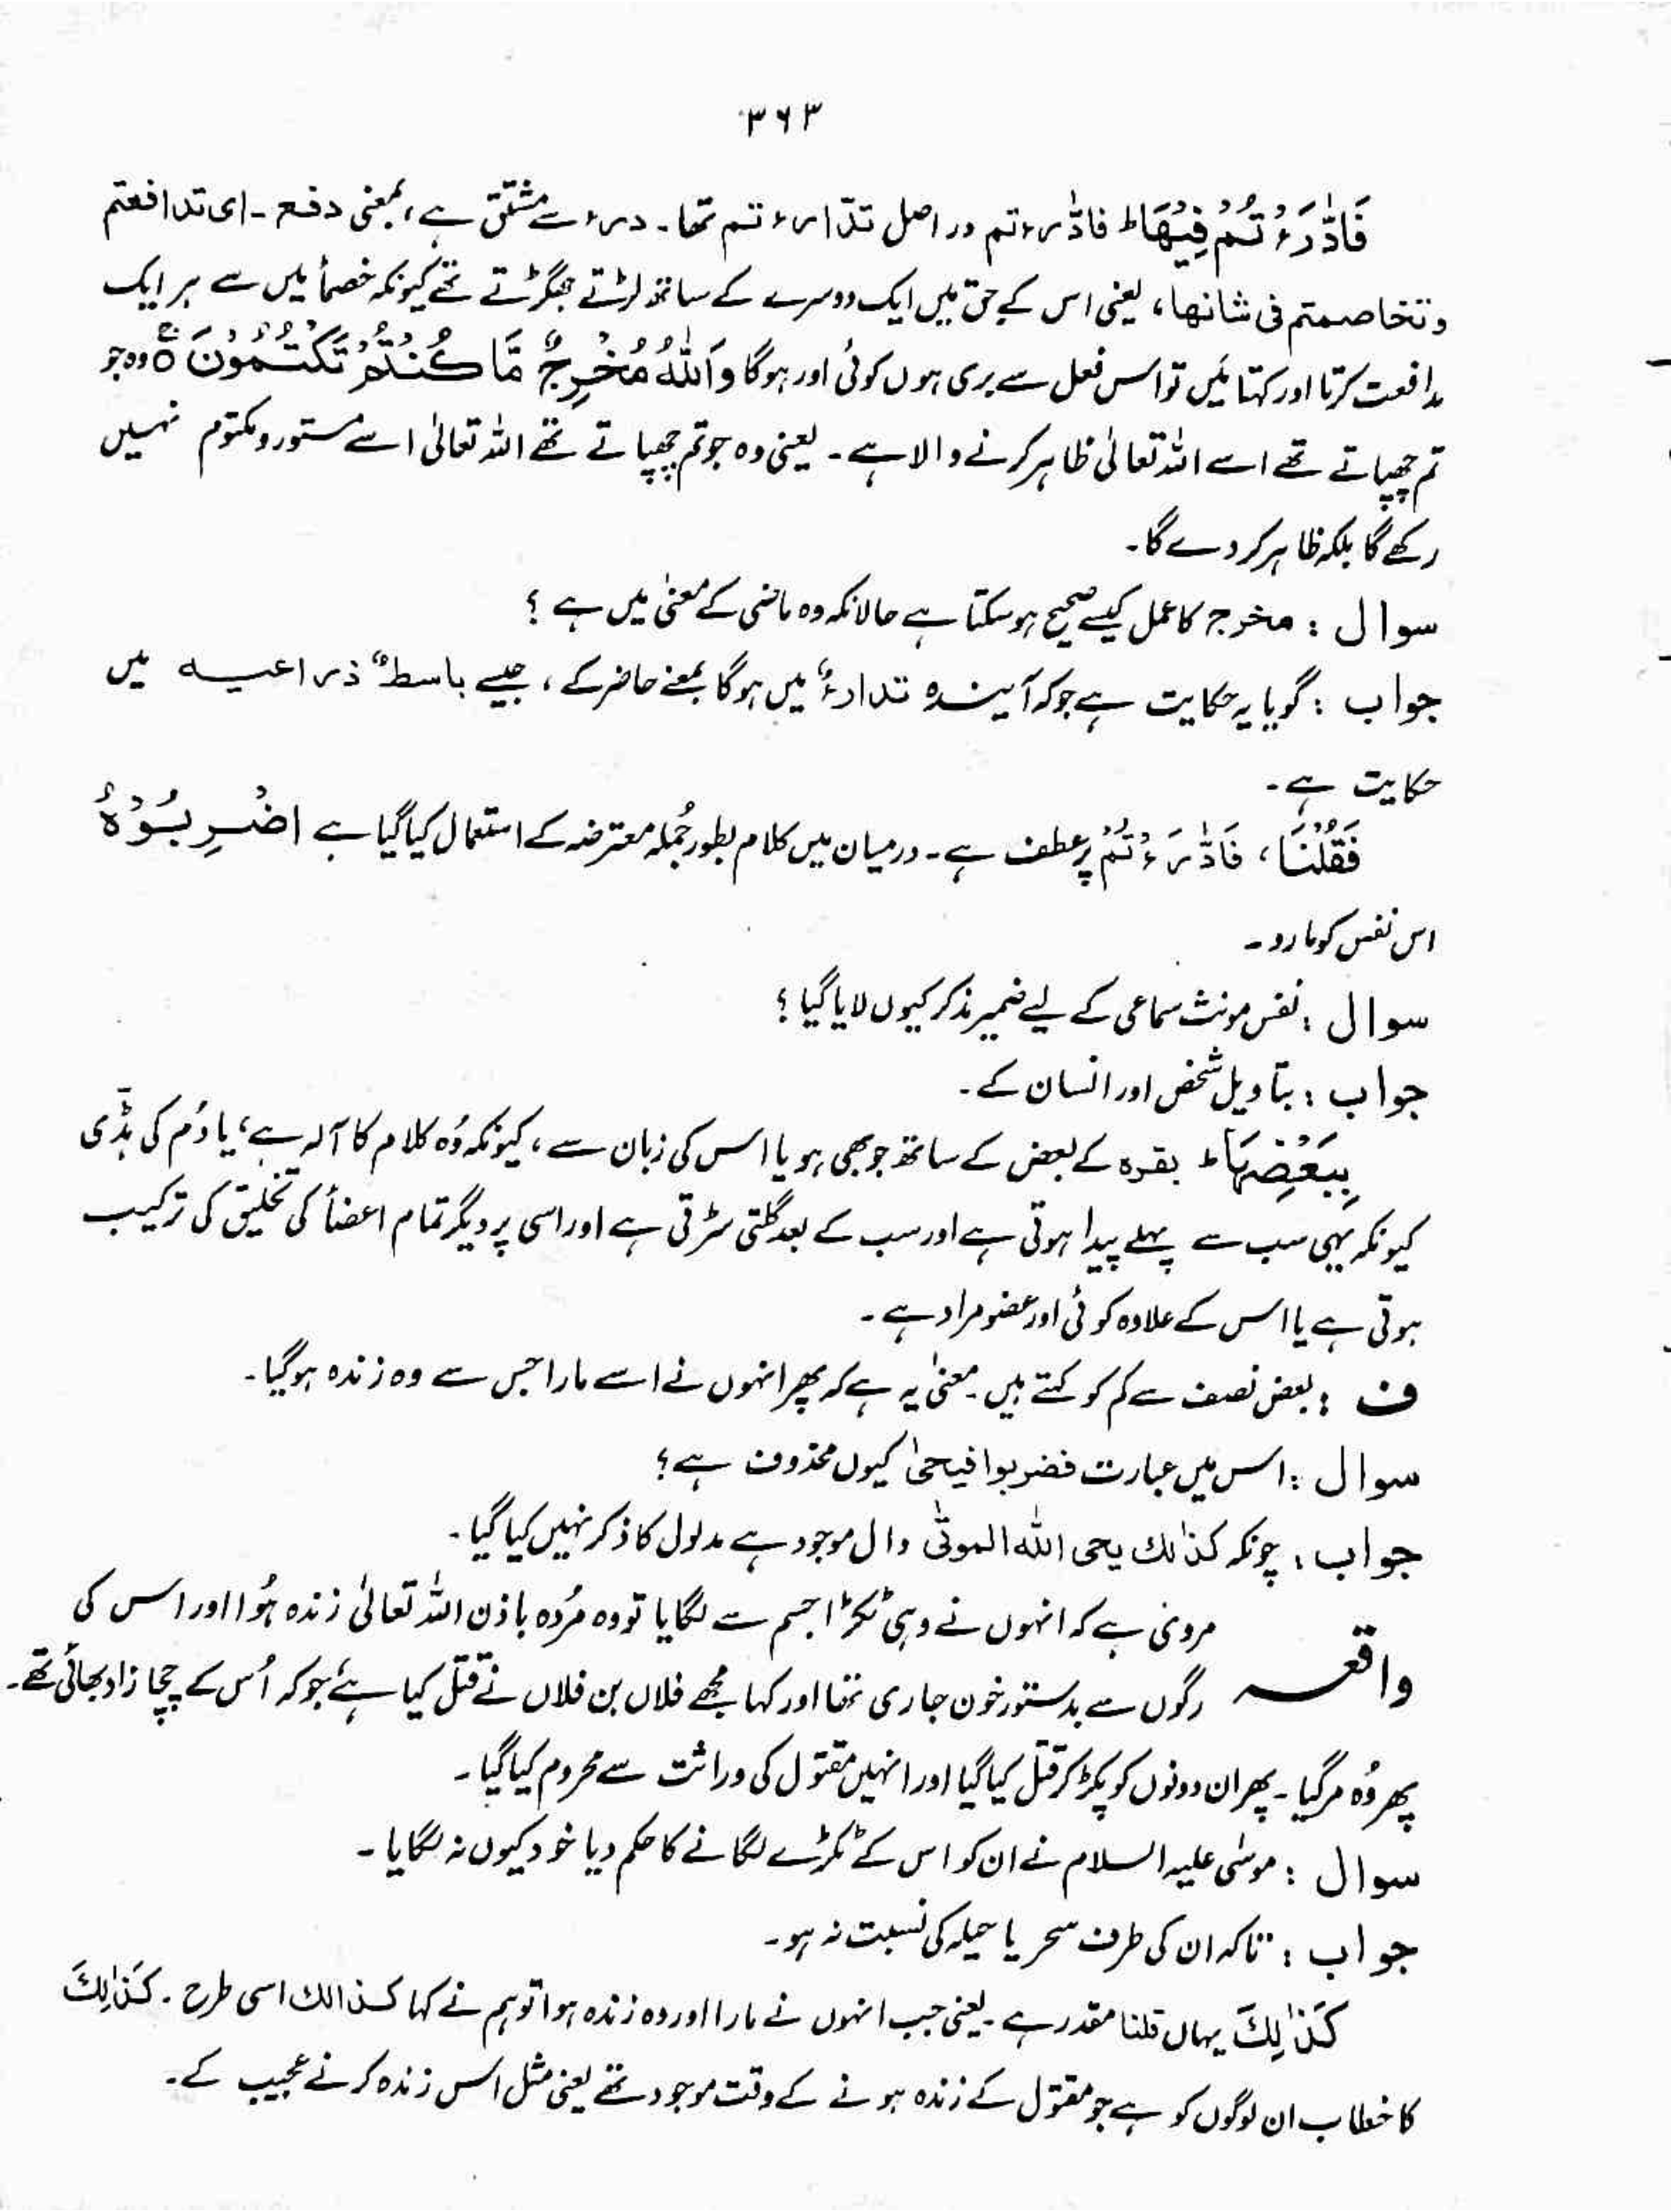 ۳۶۳
فَادّٰرَءْتُمْ فِیْهَا ؕ فادّٰرءتم در اصل تدّارءتم تھا۔ درء سے مشتق ہے، بمعنی دفع۔ ای تدافعتم
وتخاصمتم فی شانها، یعنی اس کے حق میں ایک دوسرے کے ساتھ لڑتے جھگڑتے تھے کیونکہ خصمأ میں سے ہر ایک
مدافعت کرتا اور کہتا مَیں تو اس فعل سے بری ہوں کوئی اور ہوگا وَاللّٰهُ مُخْرِجٌ مَّا كُنْتُمْ تَكْتُمُوْنَ ۚ وہ جو
تم چھپاتے تھے اسے اللہ تعالیٰ ظاہر کرنے والا ہے۔ یعنی وہ جو تم چھپاتے تھے اللہ تعالیٰ اسے مستور و مکتوم نہیں
رکھے گا بلکہ ظاہر کر دے گا۔
سوال : مخرج کا عمل کیسے صحیح ہو سکتا ہے حالانکہ وہ ماضی کے معنیٰ میں ہے ؟
جواب : گویا یہ حکایت ہے جو کہ آیندہ تدارءٔ میں ہوگا بمعنے حاضر کے ، جیسے باسطٌ ذراعیه میں
حکایت ہے۔
فَقُلْنَا ، فَادّٰرَءْتُمْ پر عطف ہے۔ درمیان میں کلام بطور جُملہ معترضہ کے استعمال کیا گیا ہے اضْرِبُوْهُ
اس نفس کو مارو۔
سوال : نفس مونث سماعی کے لیے ضمیر مذکر کیوں لایا گیا ؟
جواب : بتاویل شخص اور انسان کے۔
بِبَعْضِهَا ؕ بقرہ کے بعض کے ساتھ جو بھی ہو یا اس کی زبان سے ، کیونکہ وُہ کلام کا آلہ ہے ، یا دُم کی ہڈّی
کیونکہ یہی سب سے پہلے پیدا ہوتی ہے اور سب کے بعد گلتی سڑتی ہے اور اسی پر دیگر تمام اعضأ کی تخلیق کی ترکیب
ہوتی ہے یا اس کے علاوہ کوئی اور عضو مراد ہے۔
ف : بعض نصف سے کم کو کہتے ہیں۔ معنیٰ یہ ہے کہ پھر انہوں نے اسے مارا جس سے وہ زندہ ہوگیا۔
سوال : اس میں عبارت فضربوا فیحیٰ کیوں محذوف ہے ؟
جواب : چونکہ کذٰلك یحی اللّٰه الموتٰی دال موجود ہے مدلول کا ذکر نہیں کیا گیا۔
واقعہ مروی ہے کہ انہوں نے وہی ٹکڑا جسم سے لگایا تو وہ مُردہ باذن اللہ تعالیٰ زندہ ہُوا اور اس کی
رگوں سے بدستور خون جاری تھا اور کہا مجھے فلاں بن فلاں نے قتل کیا ہے جو کہ اُس کے چچا زاد بھائی تھے۔
پھر وُہ مر گیا۔ پھر ان دونوں کو پکڑ کر قتل کیا گیا اور انہیں مقتول کی وراثت سے محروم کیا گیا۔
سوال : موسٰی علیہ السلام نے ان کو اس کے ٹکڑے لگانے کا حکم دیا خود کیوں نہ لگایا۔
جواب : تاکہ ان کی طرف سحر یا حیلہ کی نسبت نہ ہو۔
كَذٰلِكَ یہاں قلنا مقدر ہے۔ یعنی جب انہوں نے مارا اور وہ زندہ ہوا تو ہم نے کہا کذالك اسی طرح۔ كَذٰلِكَ
کا خطاب ان لوگوں کو ہے جو مقتول کے زندہ ہونے کے وقت موجود تھے یعنی مثل اس زندہ کرنے عجیب کے۔